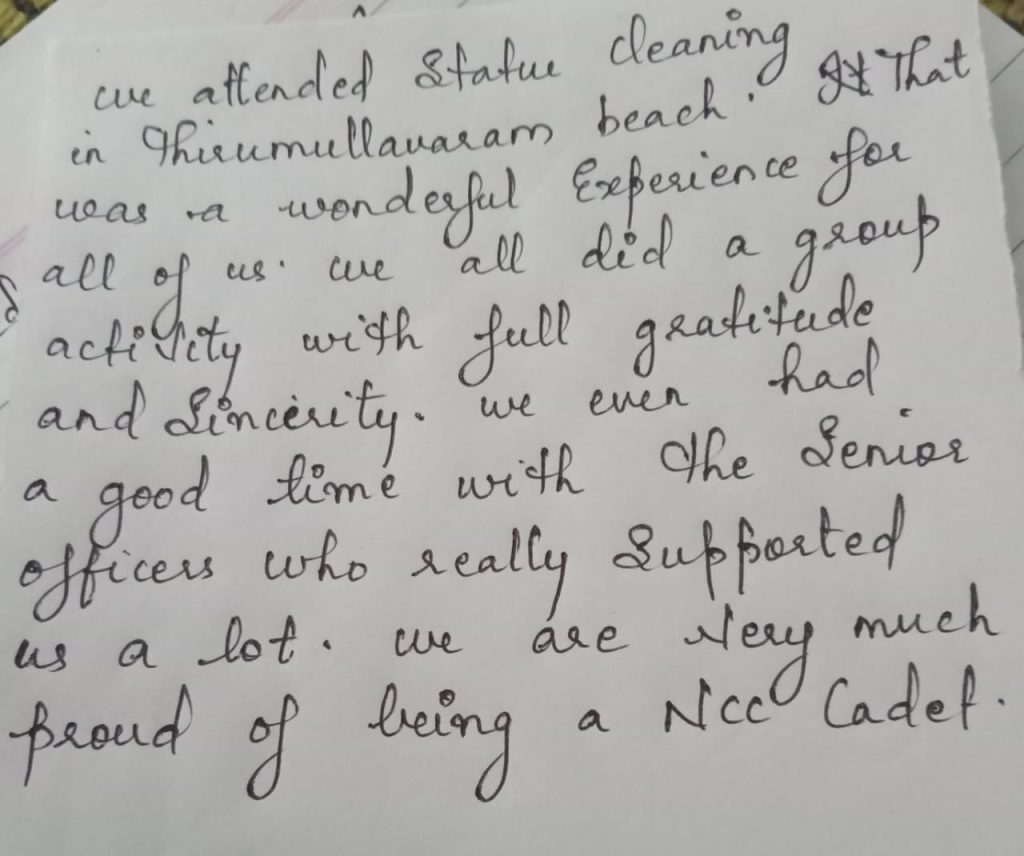 we attended Statue cleaning
in Thirumullavaram beach. That
was a wonderful Experience for
all of us. we all did a group
activity with full gratitude
and Sincerity. we even had
a good time with the Senior
officers who really Supported
us a lot. we are Very much
proud of being a Ncc Cadet.